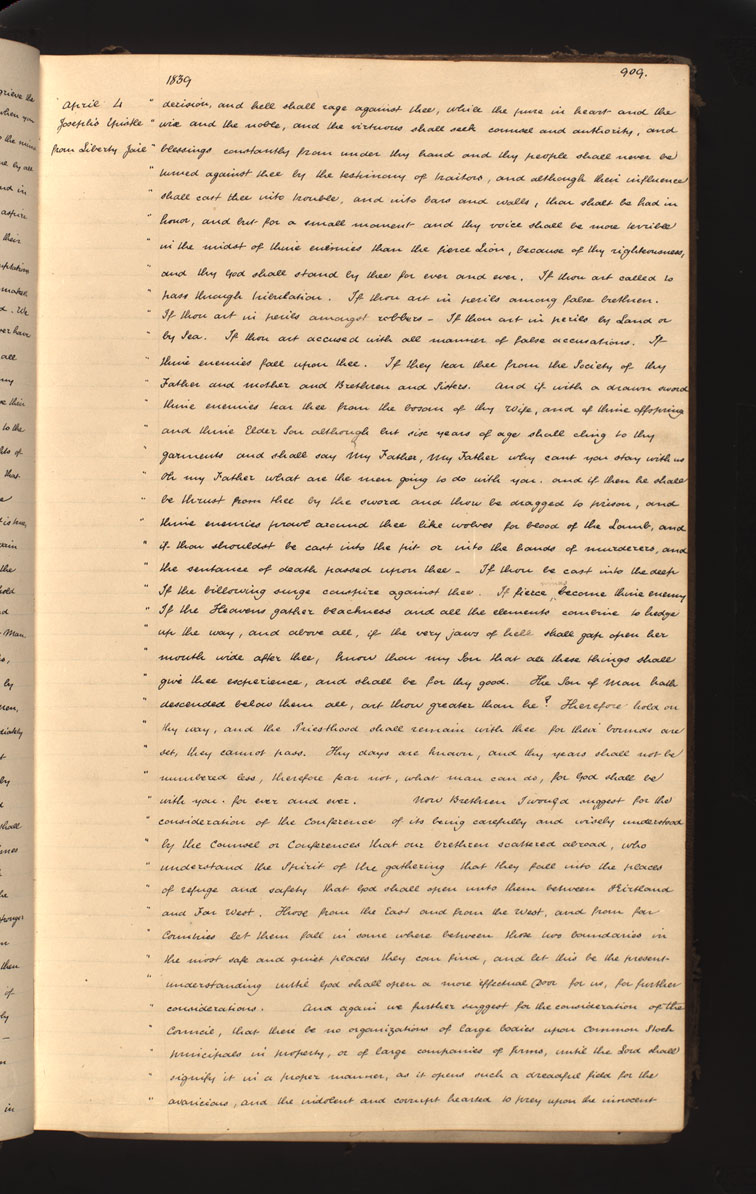 1839
909.
April 4 " derision, and hell shall rage against thee, while the pure in heart and the
Joseph's Epistle " wise and the noble, and the virtuous shall seek counsel and authority, and
from Liberty Jail " blessings constantly from under thy hand and thy people shall never be
" turned against thee by the testimony of traitors, and although their influence
" shall cast thee into trouble, and into bars and walls, thou shalt be had in
" honor, and but for a small moment and thy voice shall be more terrible
" in the midst of thine enemies than the fierce Lion, because of thy righteousness,
" and thy God shall stand by thee for ever and ever. If thou art called to
" pass through tribulation. If thou art in perils among false brethren.
" If thou art in perils amongst robbers - If thou art in perils by Land or
" by Sea. If thou art accused with all manner of false accusations. If
" thine enemies fall upon thee. If they tear thee from the Society of thy
" Father and mother and Brethren and Sisters. And if with a drawn sword
" thine enemies tear thee from the bosom of thy wife, and of thine offspring
" and thine Elder Son although but six years of age shall cling to thy
" garments and shall say My Father, My Father why cant you stay with us
" Oh my Father what are the men going to do with you. and if then he shall
" be thrust from thee by the sword and thou be dragged to prison, and
" thine enemies prowl around thee like wolves for blood of the Lamb, and
" if thou shouldst be cast into the pit or into the hands of murderers, and
" the sentance of death passed upon thee - If thou be cast into the deep
" If the billowing surge conspire against thee. If fierce winds become thine enemy
" If the Heavens gather blackness and all the elements combine to hedge
" up the way, and above all, if the very jaws of hell shall gap open her
" mouth wide after thee, know thou my Son that all these things shall
" give thee experience, and shall be for thy good. The Son of Man hath
" descended below them all, art thou greater than he? Therefore hold on
" thy way, and the Priesthood shall remain with thee for their bounds are
" set, they cannot pass. Thy days are known, and thy years shall not be
" numbered less, therefore fear not, what man can do, for God shall be
" with you. for ever and ever. Now Brethren I would suggest for the
" consideration of the Conference of its being carefully and wisely understood
" by the Counsel or Conferences that our brethren scattered abroad, who
" understand the Spirit of the gathering that they fall into the places
" of refuge and safety that God shall open unto them between Kirtland
" and Far West. Those from the East and from the West, and from far
" Countries let them fall in some where between those two boundaries in
" the most safe and quiet places they can find, and let this be the present
" understanding until God shall open a more effectual Door for us, for further
" considerations. And again we further suggest for the consideration of the
" Council, that there be no organizations of large bodies upon Common Stock
" principals in property, or of large companies of firms, until the Lord shall
" signify it in a proper manner, as it opens such a dreadful field for the
" avaricious, and the indolent and corrupt hearted to prey upon the innocent